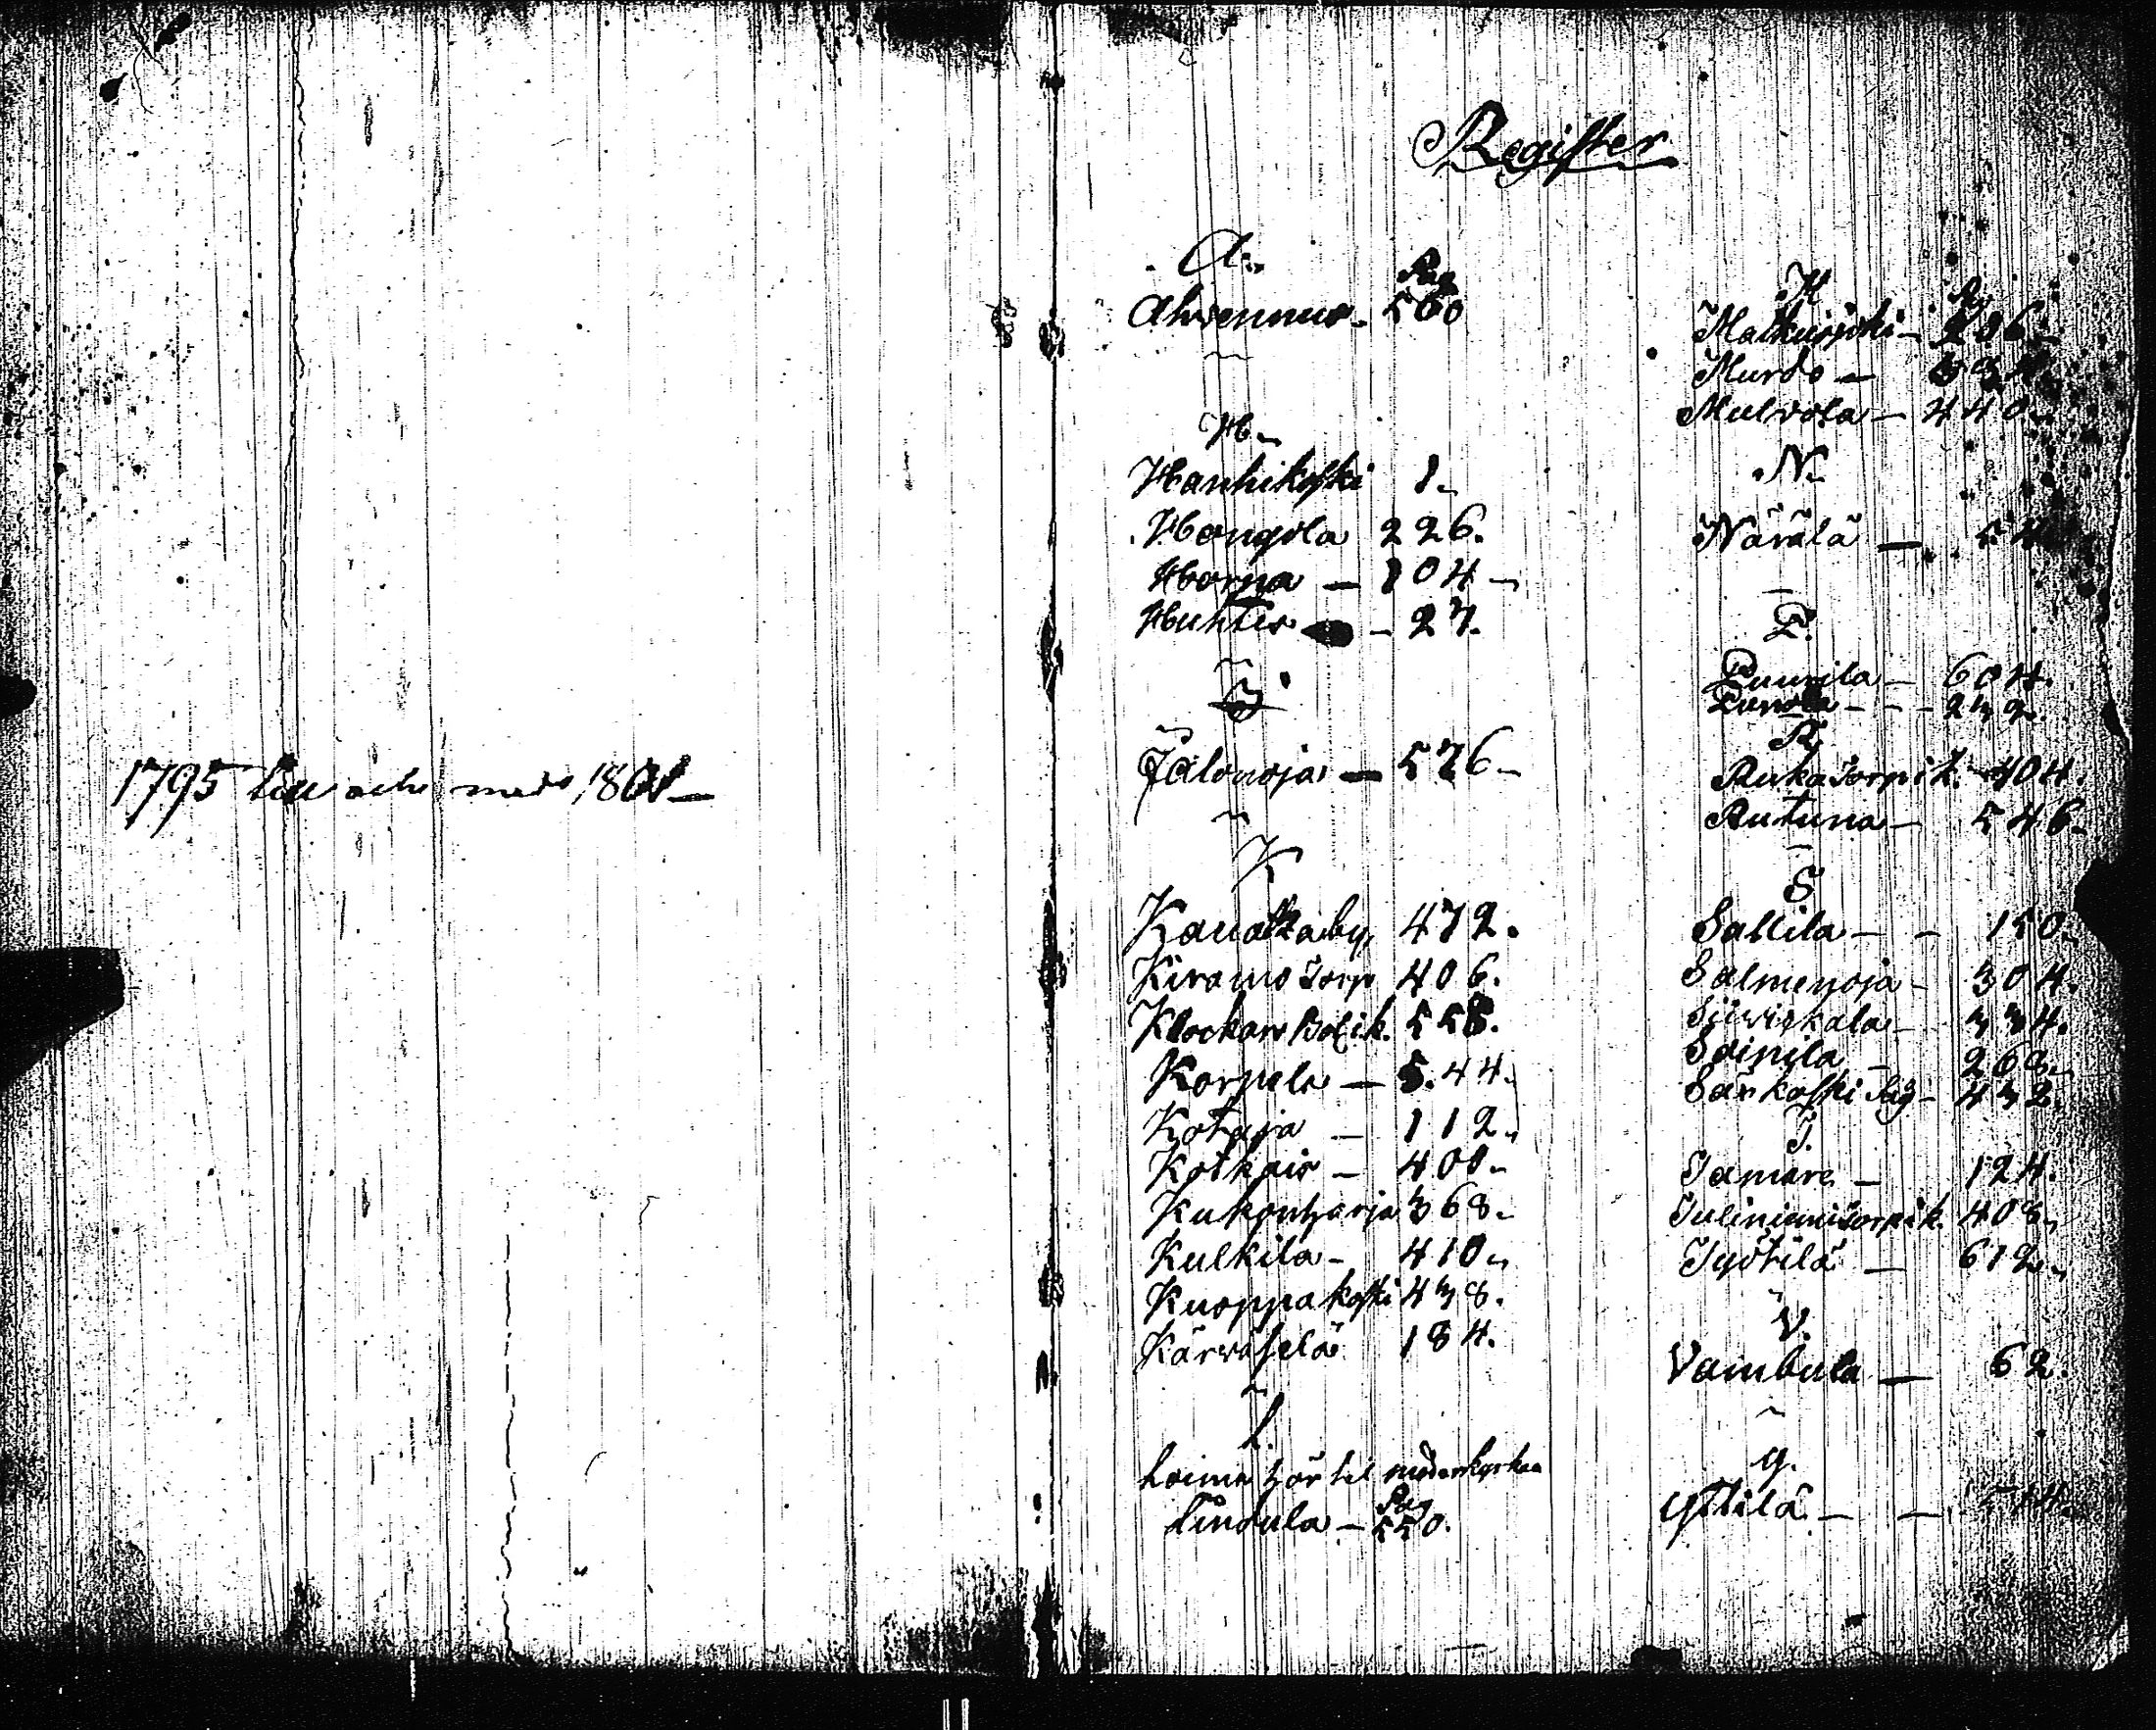 1795 till och med 1801
Register
A.
Pag
Ahvennus - 500
H.
Hanhikoski 1.
Hongola 226.
Horna - 104
Huhtis - 27.
J
Jalonoja - 576
K
Kanakaby 472.
Kiramo Torp 406.
Klockars Bol i k. 558.
Korpela - 544.
Kotoja - 112.
Kotkais - 400.
Kukonharja 368.
Kulkila - 410.
Kuoppakoski 438.
Kärväselä 184.
L.
Loima hör til moderkyrkan
Pag
Lindula - 550.
M
Pag
Matkusjoki -
Murdo -
Mulvola - 440.
N.
Närälä -
P.
Puurila - 604.
Punola - - 239.
R.
Ruka Torp i k. 404.
Rutuna - 546.
S
Sallila - - 150.
Salmenoja - 304.
Siiviskala - 334.
Soinila - 268.
Särkoski Såg - 432.
T.
Tamare - 124.
Tuliniemi Torp i k. 408.
Työtilä - 612.
V.
Vambula - 62.
Y.
Yttilä - - 514.